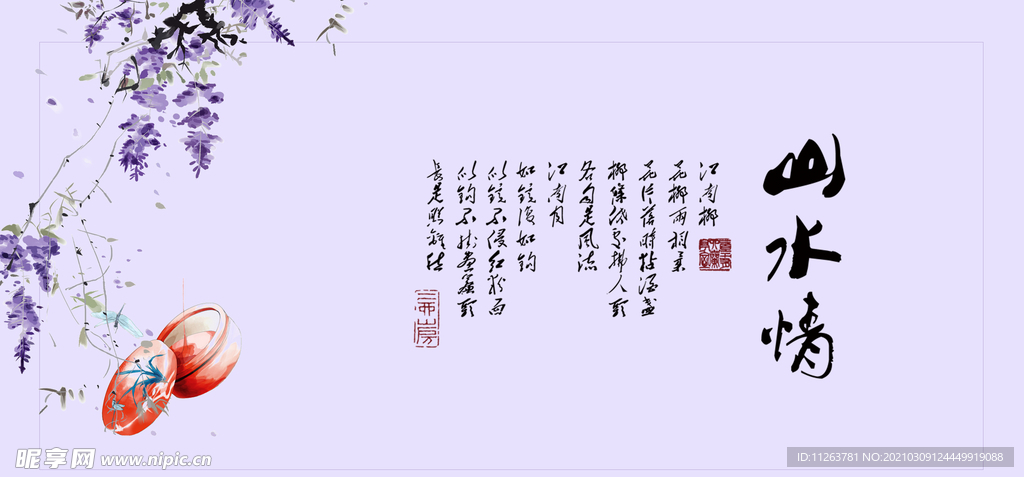 山水情
江南柳
花柳兩相柔
花片落時粘酒盞
柳條低處拂人頭
各自是風流
江南月
如鏡復如鉤
似鏡不侵紅粉面
似鉤不掛畫簾頭
長是照離愁
昵享网 www.nipic.cn
ID:11263781 NO:20210309124449919088